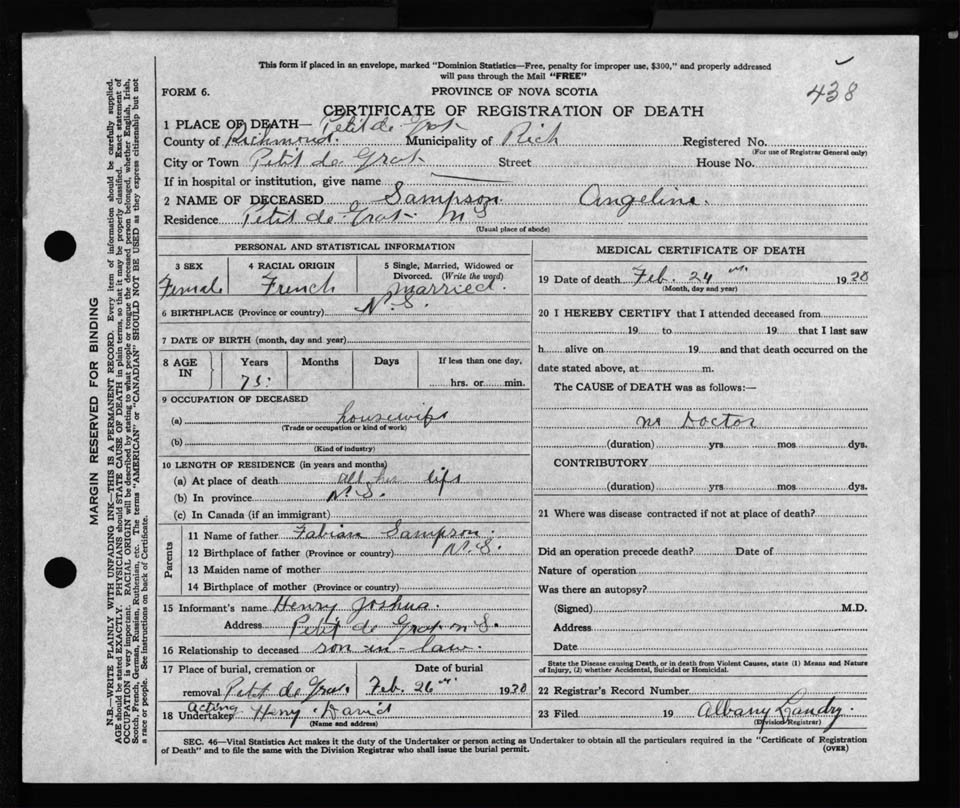 This form if placed in an envelope, marked "Dominion Statistics—Free, penalty for improper use, $300," and properly addressed
will pass through the Mail "FREE"
438
FORM 6.
PROVINCE OF NOVA SCOTIA
CERTIFICATE OF REGISTRATION OF DEATH
1 PLACE OF DEATH— Petit de Grat
County of Richmond. Municipality of Rich Registered No.
(For use of Registrar General only)
City or Town Petit de Grat Street House No.
If in hospital or institution, give name
2 NAME OF DECEASED Sampson Angeline.
Residence Petit de Grat N S
(Usual place of abode)
PERSONAL AND STATISTICAL INFORMATION
3 SEX 4 RACIAL ORIGIN 5 Single, Married, Widowed or Divorced. (Write the word)
Female French married.
6 BIRTHPLACE (Province or country) N.S.
7 DATE OF BIRTH (month, day and year)
8 AGE IN Years Months Days If less than one day,
75 hrs. or min.
9 OCCUPATION OF DECEASED
(a) housewife
(Trade or occupation or kind of work)
(b)
(Kind of industry)
10 LENGTH OF RESIDENCE (in years and months)
(a) At place of death all her life
(b) In province N.S.
(c) In Canada (if an immigrant)
Parents
11 Name of father Fabian Sampson.
12 Birthplace of father (Province or country) N.S.
13 Maiden name of mother
14 Birthplace of mother (Province or country)
15 Informant's name Henry Joshua.
Address Petit de Grat N S.
16 Relationship to deceased son-in-law.
17 Place of burial, cremation or Date of burial
removal Petit de Grat. Feb. 26 1930
18 Undertaker Acting Henry David
(Name and address)
MEDICAL CERTIFICATE OF DEATH
19 Date of death Feb. 24 1930
(Month, day and year)
20 I HEREBY CERTIFY that I attended deceased from
19 to 19 that I last saw
h alive on 19 and that death occurred on the
date stated above, at m.
The CAUSE of DEATH was as follows:—
no Doctor
(duration) yrs. mos. dys.
CONTRIBUTORY
(duration) yrs. mos. dys.
21 Where was disease contracted if not at place of death?
Did an operation precede death? Date of
Nature of operation
Was there an autopsy?
(Signed) M.D.
Address
Date
State the Disease causing Death, or in death from Violent Causes, state (1) Means and Nature
of Injury, (2) whether Accidental, Suicidal or Homicidal.
22 Registrar's Record Number
23 Filed 19 Albany Landry.
(Division Registrar)
SEC. 46—Vital Statistics Act makes it the duty of the Undertaker or person acting as Undertaker to obtain all the particulars required in the "Certificate of Registration
of Death" and to file the same with the Division Registrar who shall issue the burial permit.
(OVER)
MARGIN RESERVED FOR BINDING
N.B.—WRITE PLAINLY WITH UNFADING INK—THIS IS A PERMANENT RECORD. Every item of information should be carefully supplied.
AGE should be stated EXACTLY. PHYSICIANS should STATE CAUSE OF DEATH in plain terms, so that it may be properly classified. Exact statement of
OCCUPATION is very important. RACIAL ORIGIN will be described by stating to what people or tongue the deceased person belonged, whether English, Irish,
Scotch, French, German, Russian, Ruthenian, etc. The terms "AMERICAN" or "CANADIAN" SHOULD NOT BE USED as they express citizenship but not
a race or people. See instructions on back of Certificate.